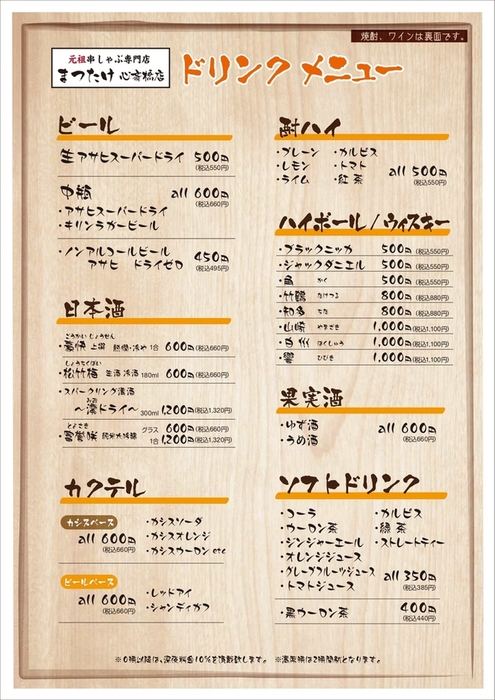 焼酎、ワインは裏面です。
元祖串しゃぶ専門店
まつたけ 心斎橋店
ドリンクメニュー
ビール
生 アサヒスーパードライ 500円(税込550円)
中瓶 all 600円(税込660円)
・アサヒスーパードライ
・キリンラガービール
・ノンアルコールビール
アサヒ ドライゼロ 450円(税込495円)
日本酒
ごうかい じょうせん
・豪快 上撰 熱燗・冷や 1合 600円(税込660円)
しょうちくばい
・松竹梅 生酒 冷酒 180ml 600円(税込660円)
・スパークリング清酒
みお
〜澪ドライ〜 300ml 1,200円(税込1,320円)
とよさき
グラス 600円(税込660円)
1合 1,200円(税込1,320円)
カクテル
カシスベース
all 600円
(税込660円)
・カシスソーダ
・カシスオレンジ
・カシスウーロン etc
ビールベース
all 600円
(税込660円)
・レッドアイ
・シャンディガフ
酎ハイ
・プレーン ・カルピス
・レモン ・トマト
・ライム ・紅茶
all 500円
(税込550円)
ハイボール/ウィスキー
・ブラックニッカ 500円(税込550円)
・ジャックダニエル 500円(税込550円)
・角 かく 500円(税込550円)
・竹鶴 たけつる 800円(税込880円)
・知多 ちた 800円(税込880円)
・山崎 やまざき 1,000円(税込1,100円)
・白州 はくしゅう 1,000円(税込1,100円)
・響 ひびき 1,000円(税込1,100円)
果実酒
・ゆず酒
・うめ酒
all 600円
(税込660円)
ソフトドリンク
・コーラ ・カルピス
・ウーロン茶 ・緑茶
・ジンジャーエール ・ストレートティー
・オレンジジュース
・グレープフルーツジュース
・トマトジュース
all 350円
(税込385円)
・黒ウーロン茶 400円
(税込440円)
※0時以降は、深夜料金10%を頂戴致します。 ※満席時は2時間制となります。